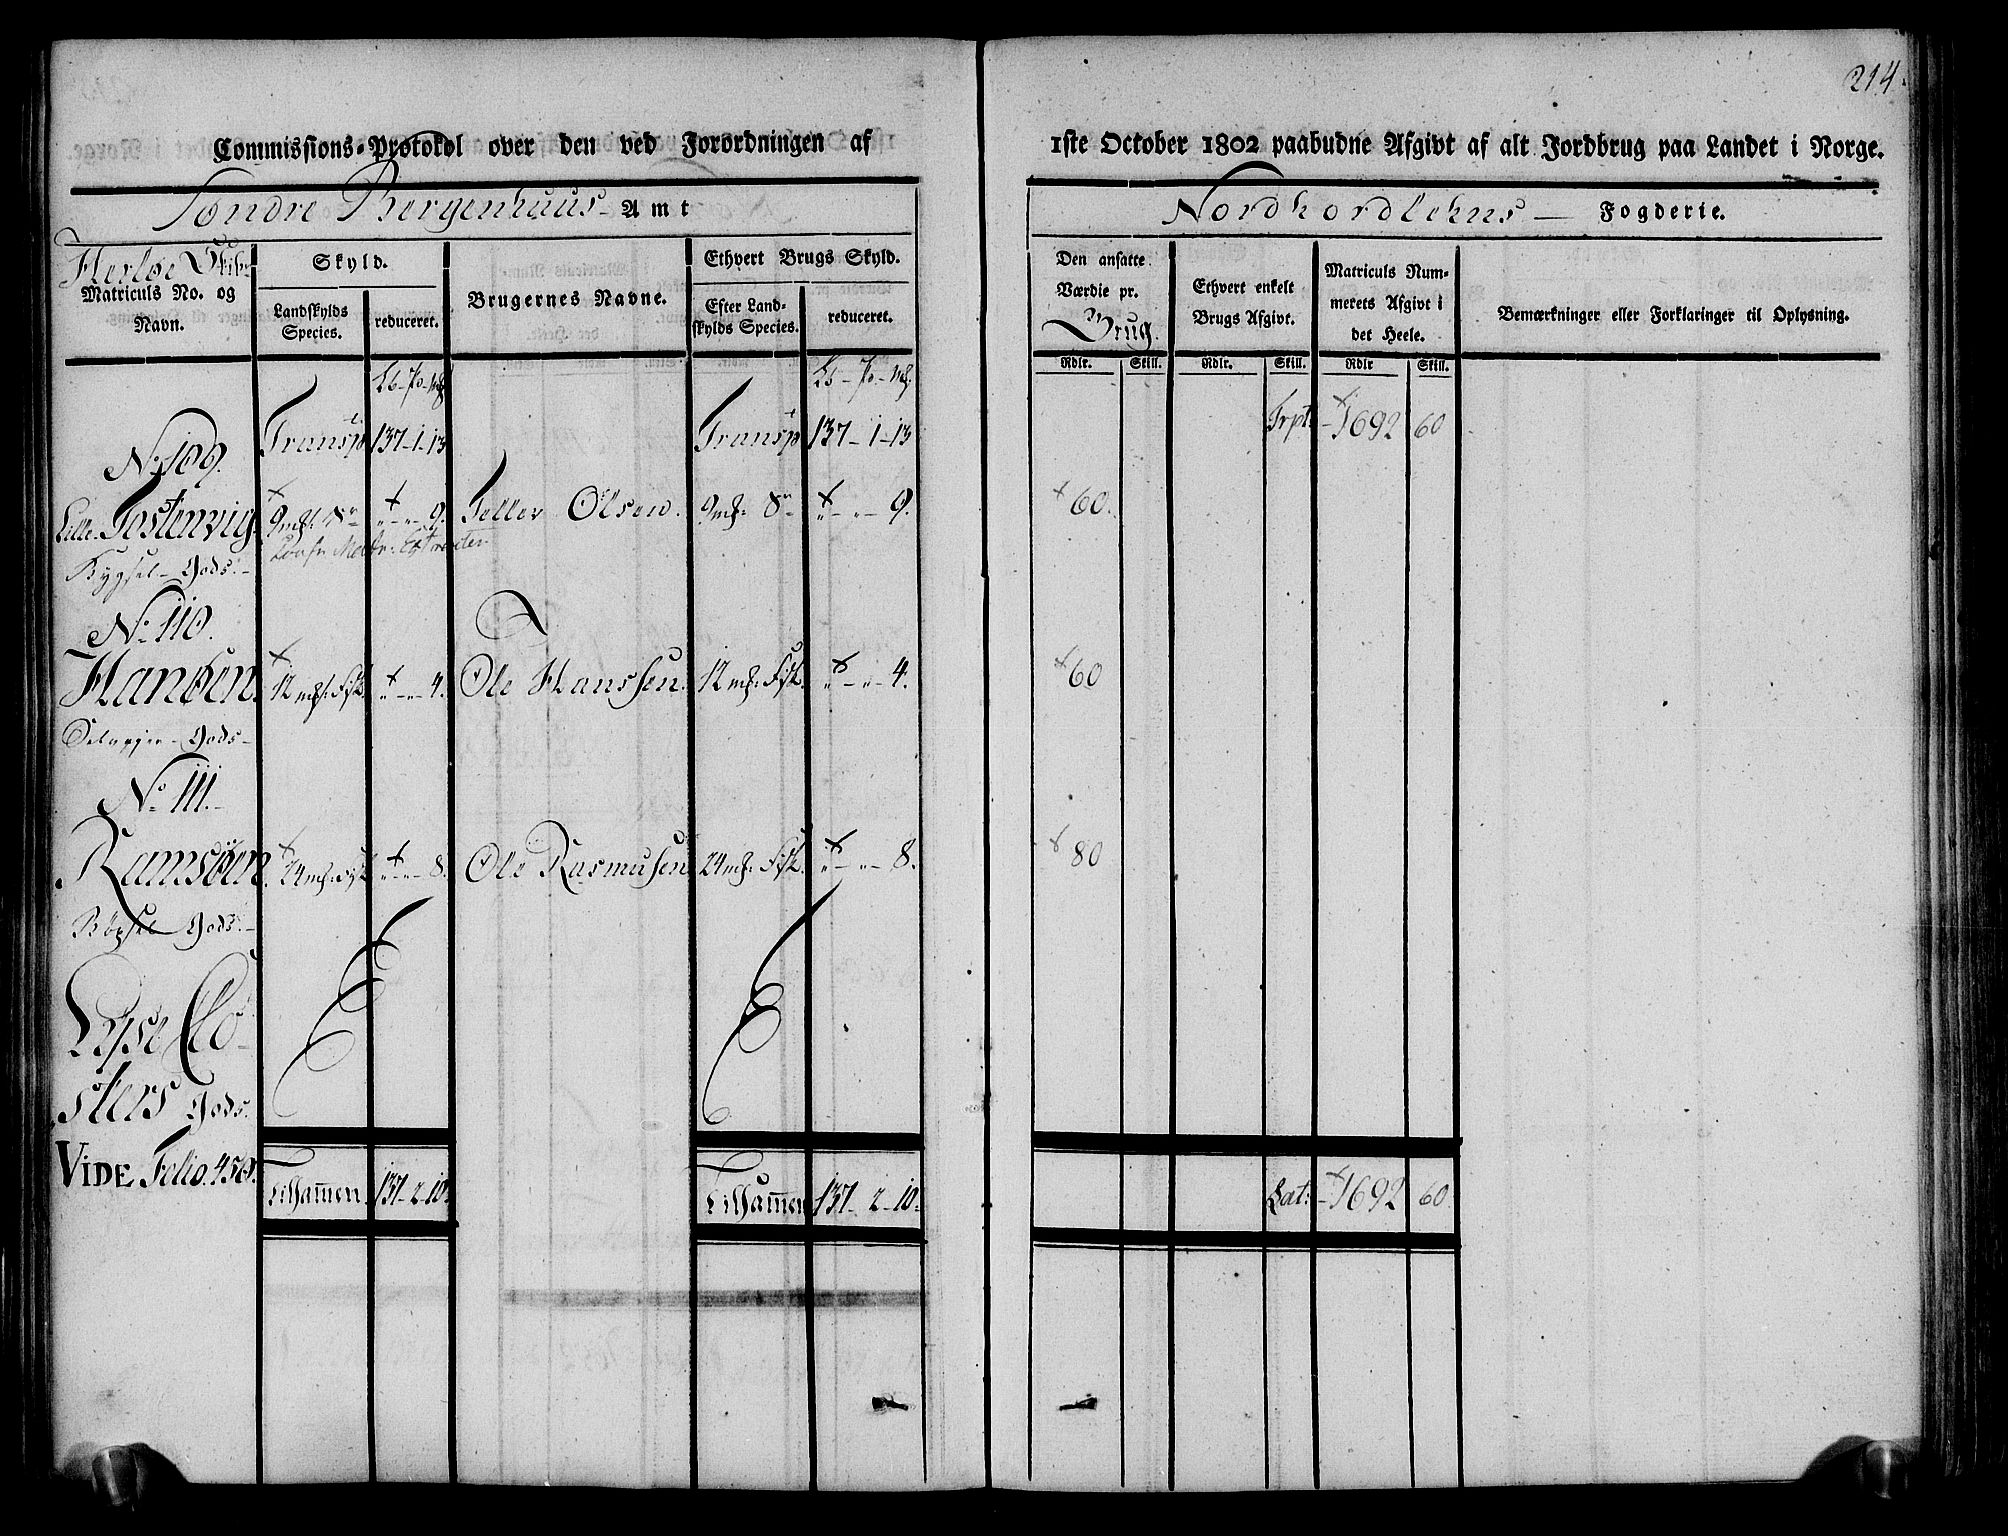 214.
Commissions-Protokol over den ved Forordningen af 1ste October 1802 paabudne Afgivt af alt Jordbrug paa Landet i Norge.
Søndre Bergenhuus Amt
Nordhordlehns Fogderie.
Herløe Skibr
Matriculs No. og Navn.
Skyld.
Landskylds Species.
reduceret.
Brugernes Navne.
Ethvert Brugs Skyld.
Efter Landskylds Species.
reduceret.
Den ansatte Værdie pr. Brug.
Ethvert enkelt Brugs Afgivt.
Matriculs Nummerets Afgivt i det Heele.
Bemærkninger eller Forklaringer til Oplysning.
Rdlr. Skill. Rdlr. Skill. Rdlr Skill.
Transp 137-1-13 Transp 137-1-13 Trpt: 1692 60
No 109.
Lille Tostenvig 9 mk: „-„-9. Teller Olsen. 9 mk: „-„-9. 60.
Bygsel-Gods-
No 110.
Hanøen 12 mk: Fisk „-„-4. Ole Hanssen. 12 mk: Fisk. „-„-4. 60
Gods-
No 111.
Ramsøen 24 mk: Fisk „-„-8. Ole Rasmusen 24 mk: Fisk. „-„-8. 80
Bygsel Gods-
Lyse Clo-
sters Gods.
VIDE Folio. 450.
Tilsamen 137-2-10 Tilsamen 137-2-10 Lat: 1692 60